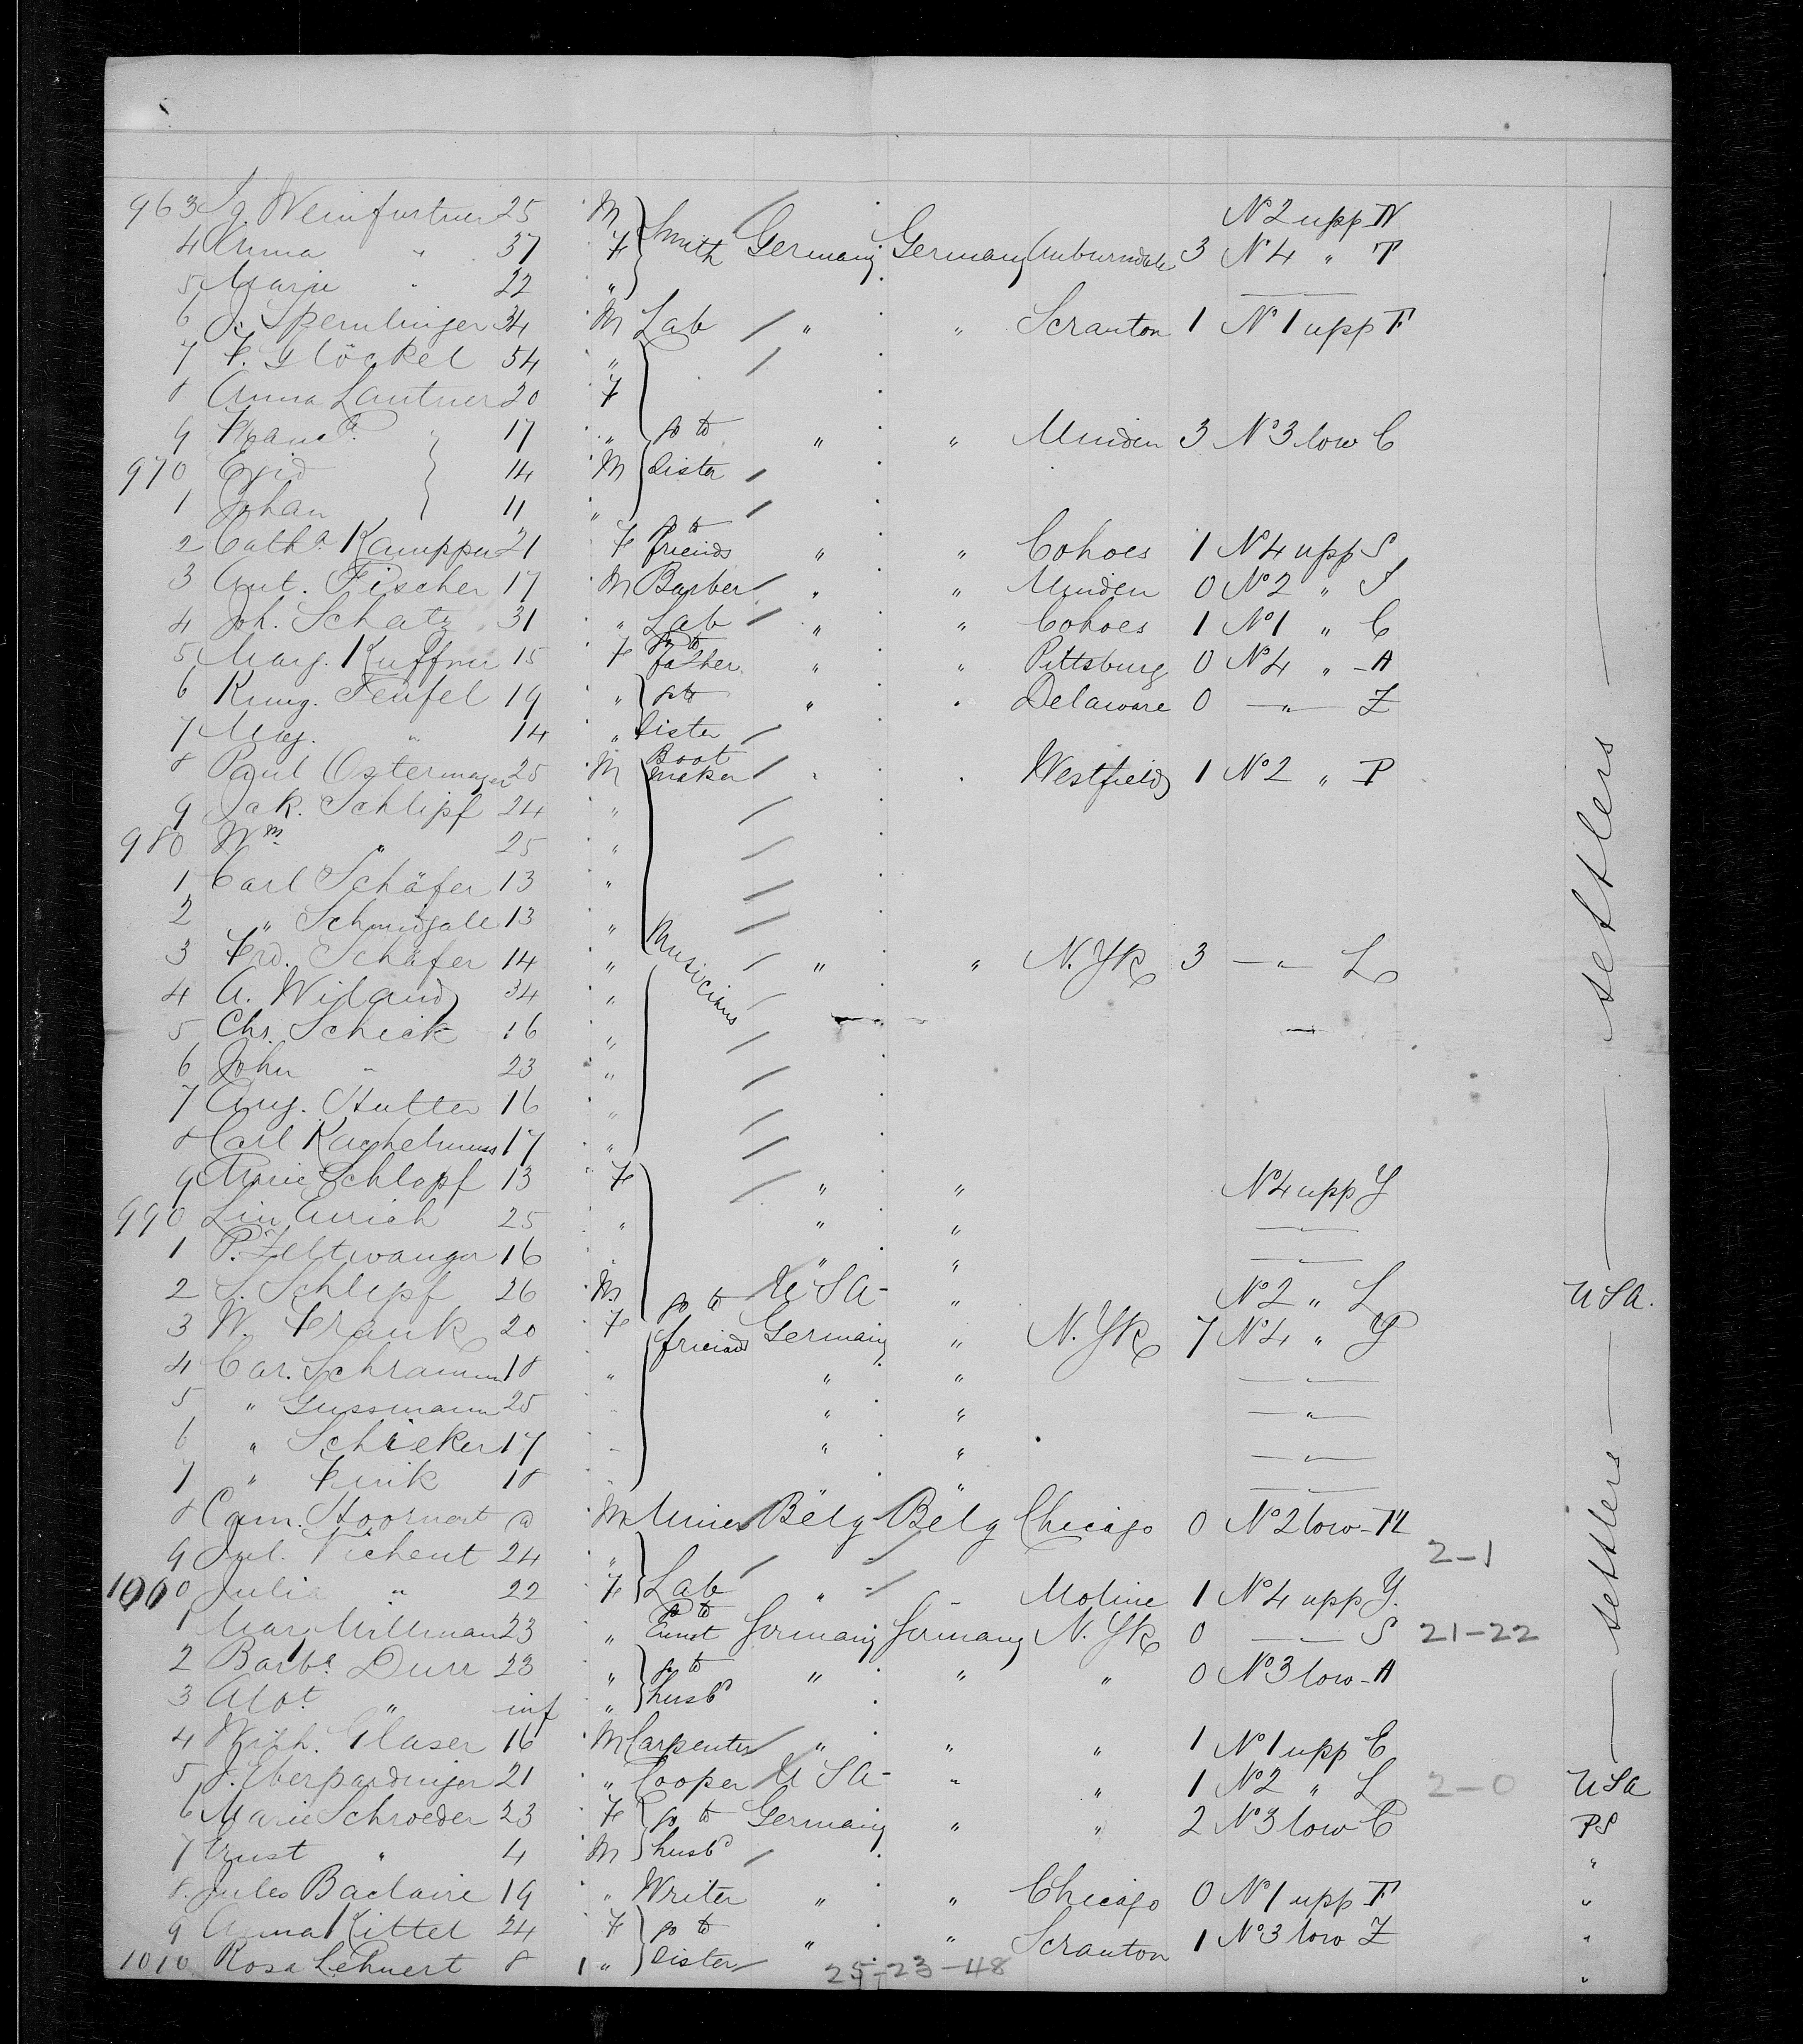 963 Ig. Weinfurtner 25 M Smith Germany Germany Auburndale 3 No 2 upp N
4 Anna " 37 F No 4 " P
5 Marie " 22 "
6 J. Sperlinger 34 M Lab " " Scranton 1 No 1 upp F
7 F. Glöckel 54 "
8 Anna Lautner 20 F
9 Franca. " 17 " go to " " Minden 3 No 3 low C
970 Egid 14 M Sister
1 Johan 11 "
2 Catha. Kamppn 21 F go to friends " " Cohoes 1 No 4 upp S
3 Ant. Fischer 17 M Barber " " Minden 0 No 2 " S
4 Joh. Schatz 31 " Lab " " Cohoes 1 No 1 " C
5 Marg. Kuffner 15 F go to father " " Pittsburg 0 No 4 " A
6 Kung. Teufel 19 " go to " " Delaware 0 " Z
7 Mag. " 14 " Sister
8 Paul Ostermayer 25 M Boot maker " " Westfield 1 No 2 " P
9 Jak. Schlipf 24 "
980 Wm " 25 "
1 Carl Schäfer 13 "
2 " Schmidgall 13 "
3 Frd. Schäfer 14 " Musicians " " N. Yk 3 " L
4 A. Wiland 34 "
5 Chr. Schick 16 "
6 John " 23 "
7 Aug. Hutter 16 "
8 Carl Kachelmuss 17 "
9 Marie Schlopf 13 F " " No 4 upp Y
990 Lin Aurich 25 " " " "
1 P. Zeltwanger 16 " " " "
2 S. Schlipf 26 M U S A " No 2 " L U S A.
3 W. Frank 20 F go to friends Germany " N. Yk 7 No 4 " Y
4 Car. Schramm 18 " " " "
5 " Gussmann 25 " " " "
6 " Schieker 17 " " " "
7 " Fink 18 " " " "
8 Cam. Hoornart a M Miner Belg Belg Chicago 0 No 2 low H
9 Jul. Vichent 24 " 2-1
1000 Julia " 22 F Lab " " Moline 1 No 4 upp Y.
1 Mary Millman 23 " go to Aunt Germany Germany N. Yk 0 " S 21-22
2 Barba. Durr 23 " go to " " " 0 No 3 low A
3 Albt. " inf " husbd
4 Wilh. Glaser 16 M Carpenter " " " 1 No 1 upp C
5 J. Eberpardinger 21 " Cooper U S A " " 1 No 2 " L 2-0 U S A
6 Marie Schroeder 23 F go to Germany " " 2 No 3 low C PS
7 Ernst " 4 M husbd "
8. Jules Baclaire 19 " Writer " " Chicago 0 No 1 upp F "
9 Anna Kittel 24 F go to " " Scranton 1 No 3 low Z "
1010 Rosa Lehnert 8 1 " Sister "
25-23-48
settlers
settlers